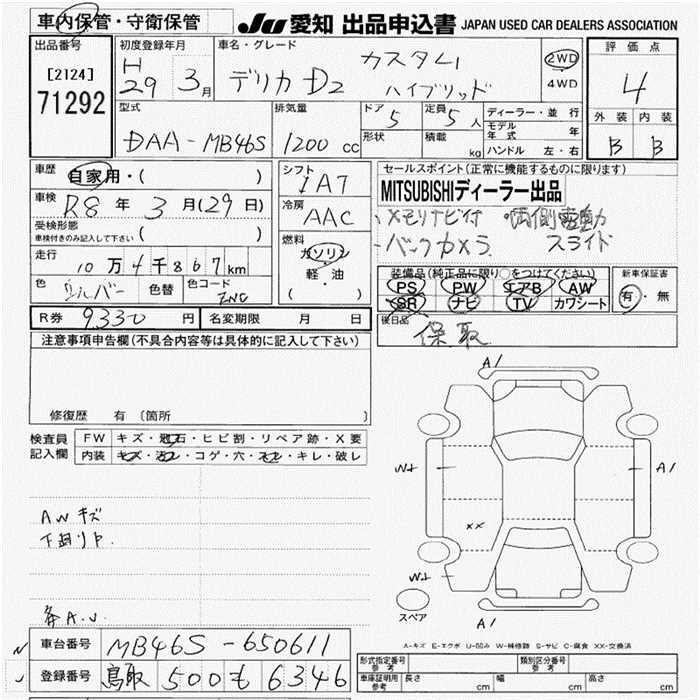 車内保管・守衛保管
JU 愛知 出品申込書 JAPAN USED CAR DEALERS ASSOCIATION
出品番号
[2124]
71292
初度登録年月
H
29 3月
車名・グレード
デリカ D2 カスタム
ハイブリッド
2WD
4WD
評価点
4
外装 内装
B B
型式
DAA-MB46S
排気量
1200 cc
ドア 5
形状
定員 5人
積載 kg
ディーラー・並行
モデル年式 年
ハンドル 左・右
車歴 自家用・( )
車検 R8年 3月(29日)
受検形態
車検付きのみ記入して下さい ( )
走行 10万4千867km
色 シルバー 色替 色コード ZNC
シフト
IAT
冷房
AAC
燃料
ガソリン
軽・油
( )
セールスポイント(正常に機能するものに限ります)
MITSUBISHIディーラー出品
メモリナビ付 ・両側電動
バックカメラ スライド
装備品(純正品に限り○をつけてください)
PS PW エアB AW
SR ナビ TV カワシート
新車保証書
有・無
R券 9330 円 名変期限 月 日
後日品
保取
注意事項申告欄(不具合内容等は具体的に記入して下さい)
修復歴 有(箇所
検査員
記入欄
FW キズ・飛石・ヒビ割・リペア跡・X要
内装 キズ・汚レ・コゲ・穴・スレ・キレ・破レ
AWキズ
下廻りP
A1
W+ A1
XX
W+
A1
スペア
A-キズ E-エクボ U-凹み W-補修跡 S-サビ C-腐食 XX-交換済
車台番号 MB46S-650611
登録番号 鳥取 500 も 6346
形式指定番号
参考
類別区分番号
参考
車庫証明用
参考
長さ cm 幅 cm 高さ cm